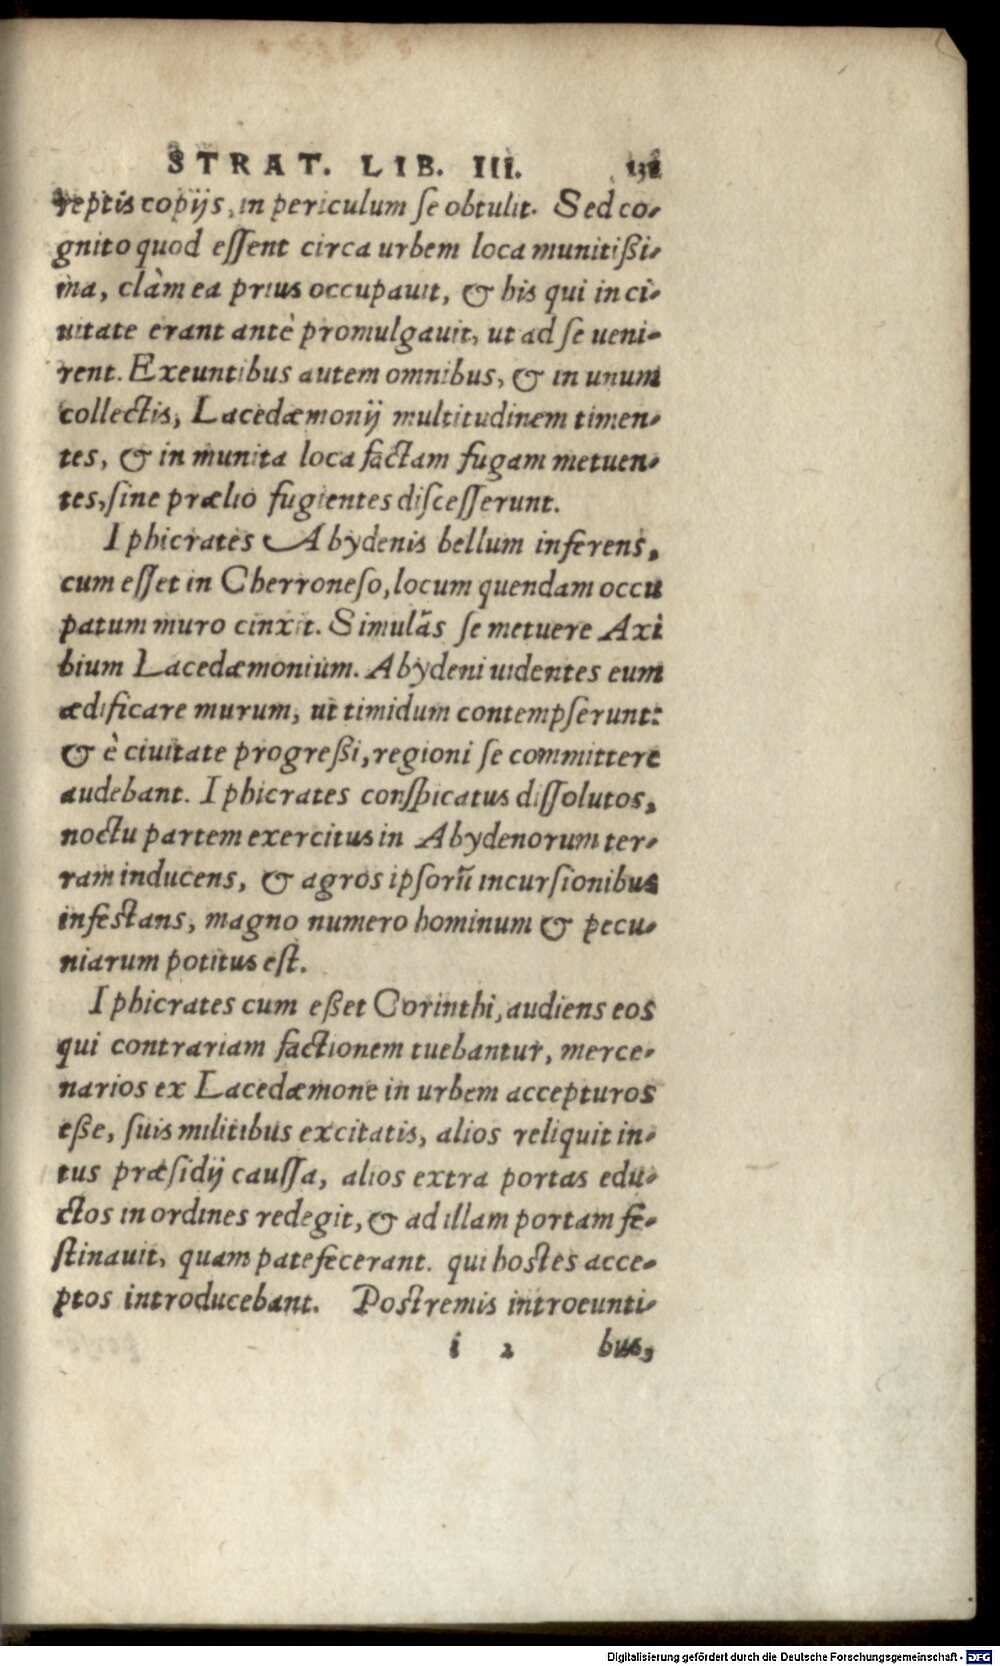 STRAT. LIB. III. 131
reptis copijs, in periculum ſe obtulit. Sed co-
gnito quod eſſent circa urbem loca munitißi-
ma, clàm ea prius occupauit, & his qui in ci-
uitate erant antè promulgauit, ut ad ſe ueni-
rent. Exeuntibus autem omnibus, & in unum
collectis, Lacedæmonij multitudinem timen-
tes, & in munita loca factam fugam metuen-
tes, ſine prælio fugientes diſceſſerunt.
Iphicrates Abydenis bellum inferens,
cum eſſet in Cherroneſo, locum quendam occu
patum muro cinxit. Simulãs ſe metuere Axi
bium Lacedæmonium. Abydeni uidentes eum
ædificare murum, ut timidum contempſerunt:
& è ciuitate progreßi, regioni ſe committere
audebant. Iphicrates conſpicatus diſſolutos,
noctu partem exercitus in Abydenorum ter-
ram inducens, & agros ipſorũ incurſionibus
infeſtans, magno numero hominum & pecu-
niarum potitus eſt.
Iphicrates cum eßet Corinthi, audiens eos
qui contrariam factionem tuebantur, merce-
narios ex Lacedæmone in urbem accepturos
eße, ſuis militibus excitatis, alios reliquit in-
tus præſidij cauſſa, alios extra portas edu-
ctos in ordines redegit, & ad illam portam fe-
ſtinauit, quam patefecerant. qui hoſtes acce-
ptos introducebant. Poſtremis introeunti-
i 2 bus,
Digitalisierung gefördert durch die Deutsche Forschungsgemeinschaft - DFG